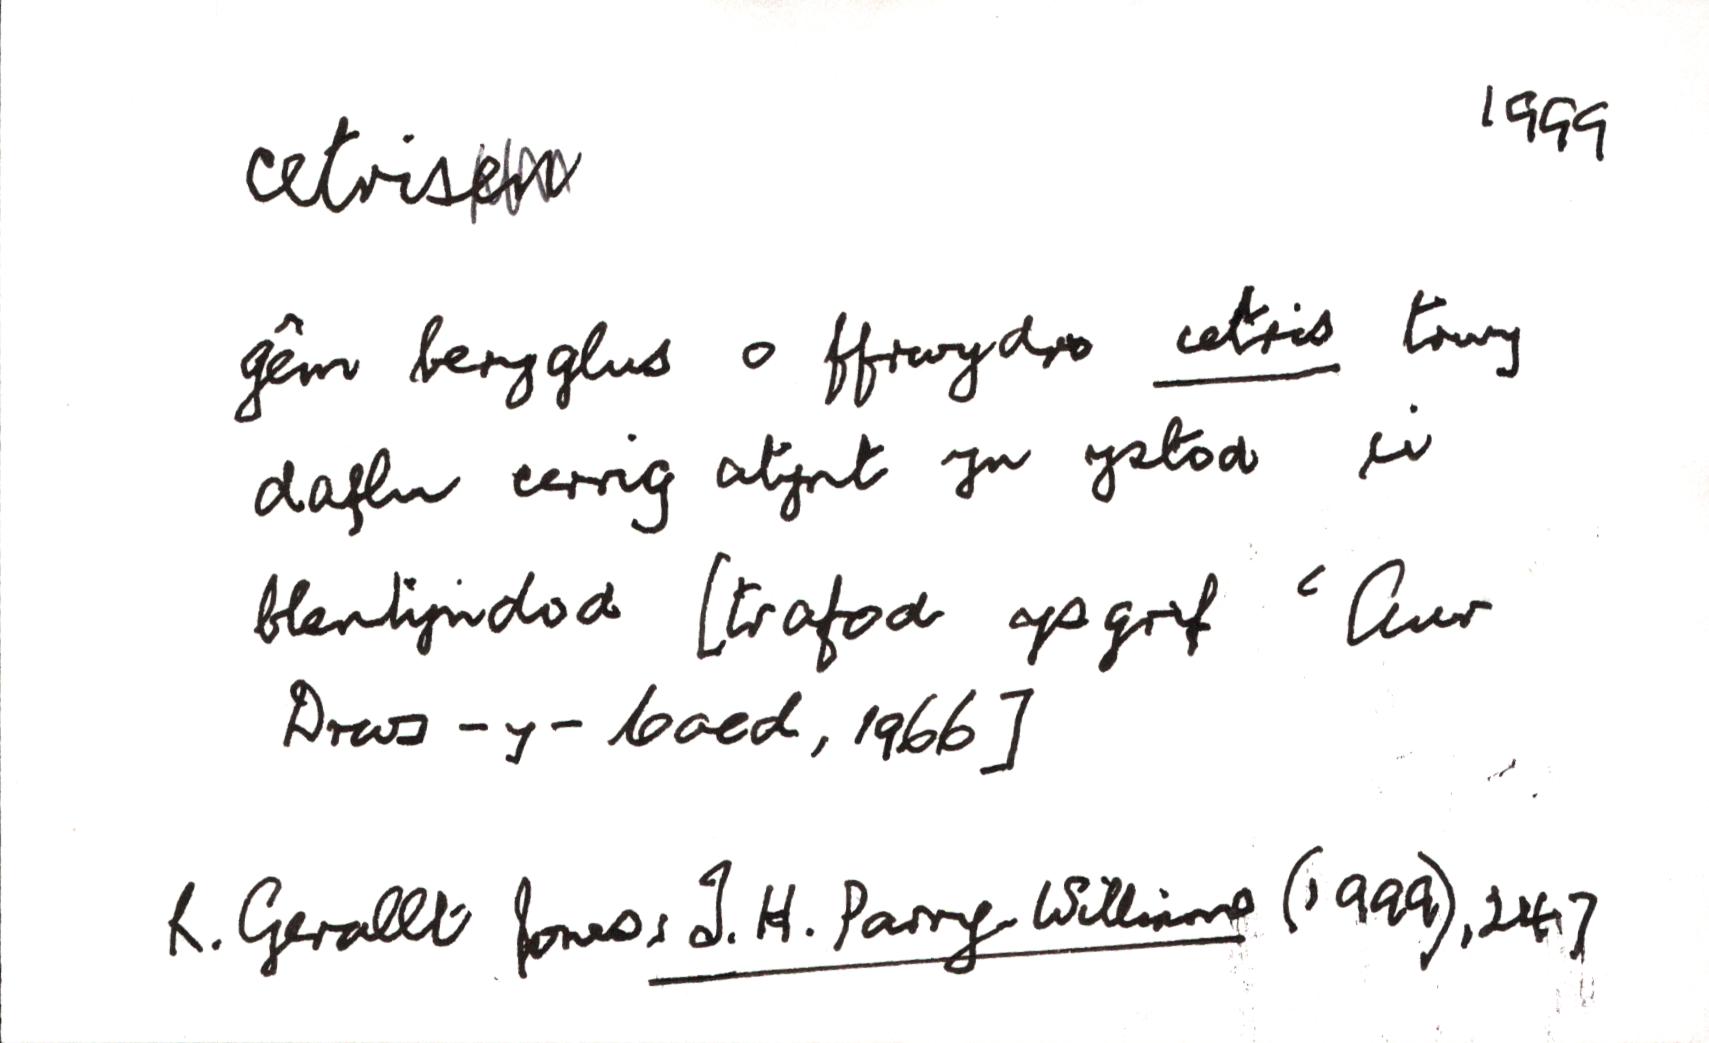 1999
cetris
gêm beryglus o ffrwydro cetris trwy
daflu cerrig atynt yn ystod ei
blentyndod [trafod ysgrif ‘Aur
Drws-y-coed, 1966]
R. Gerallt Jones: T. H. Parry-Williams (1999), 247